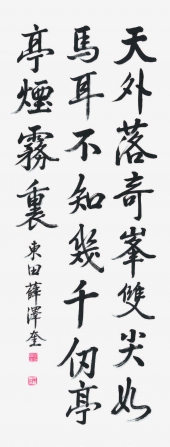 天外落奇峯雙尖如
馬耳不知幾千仞亭
亭煙霧裏
東田薛澤奎